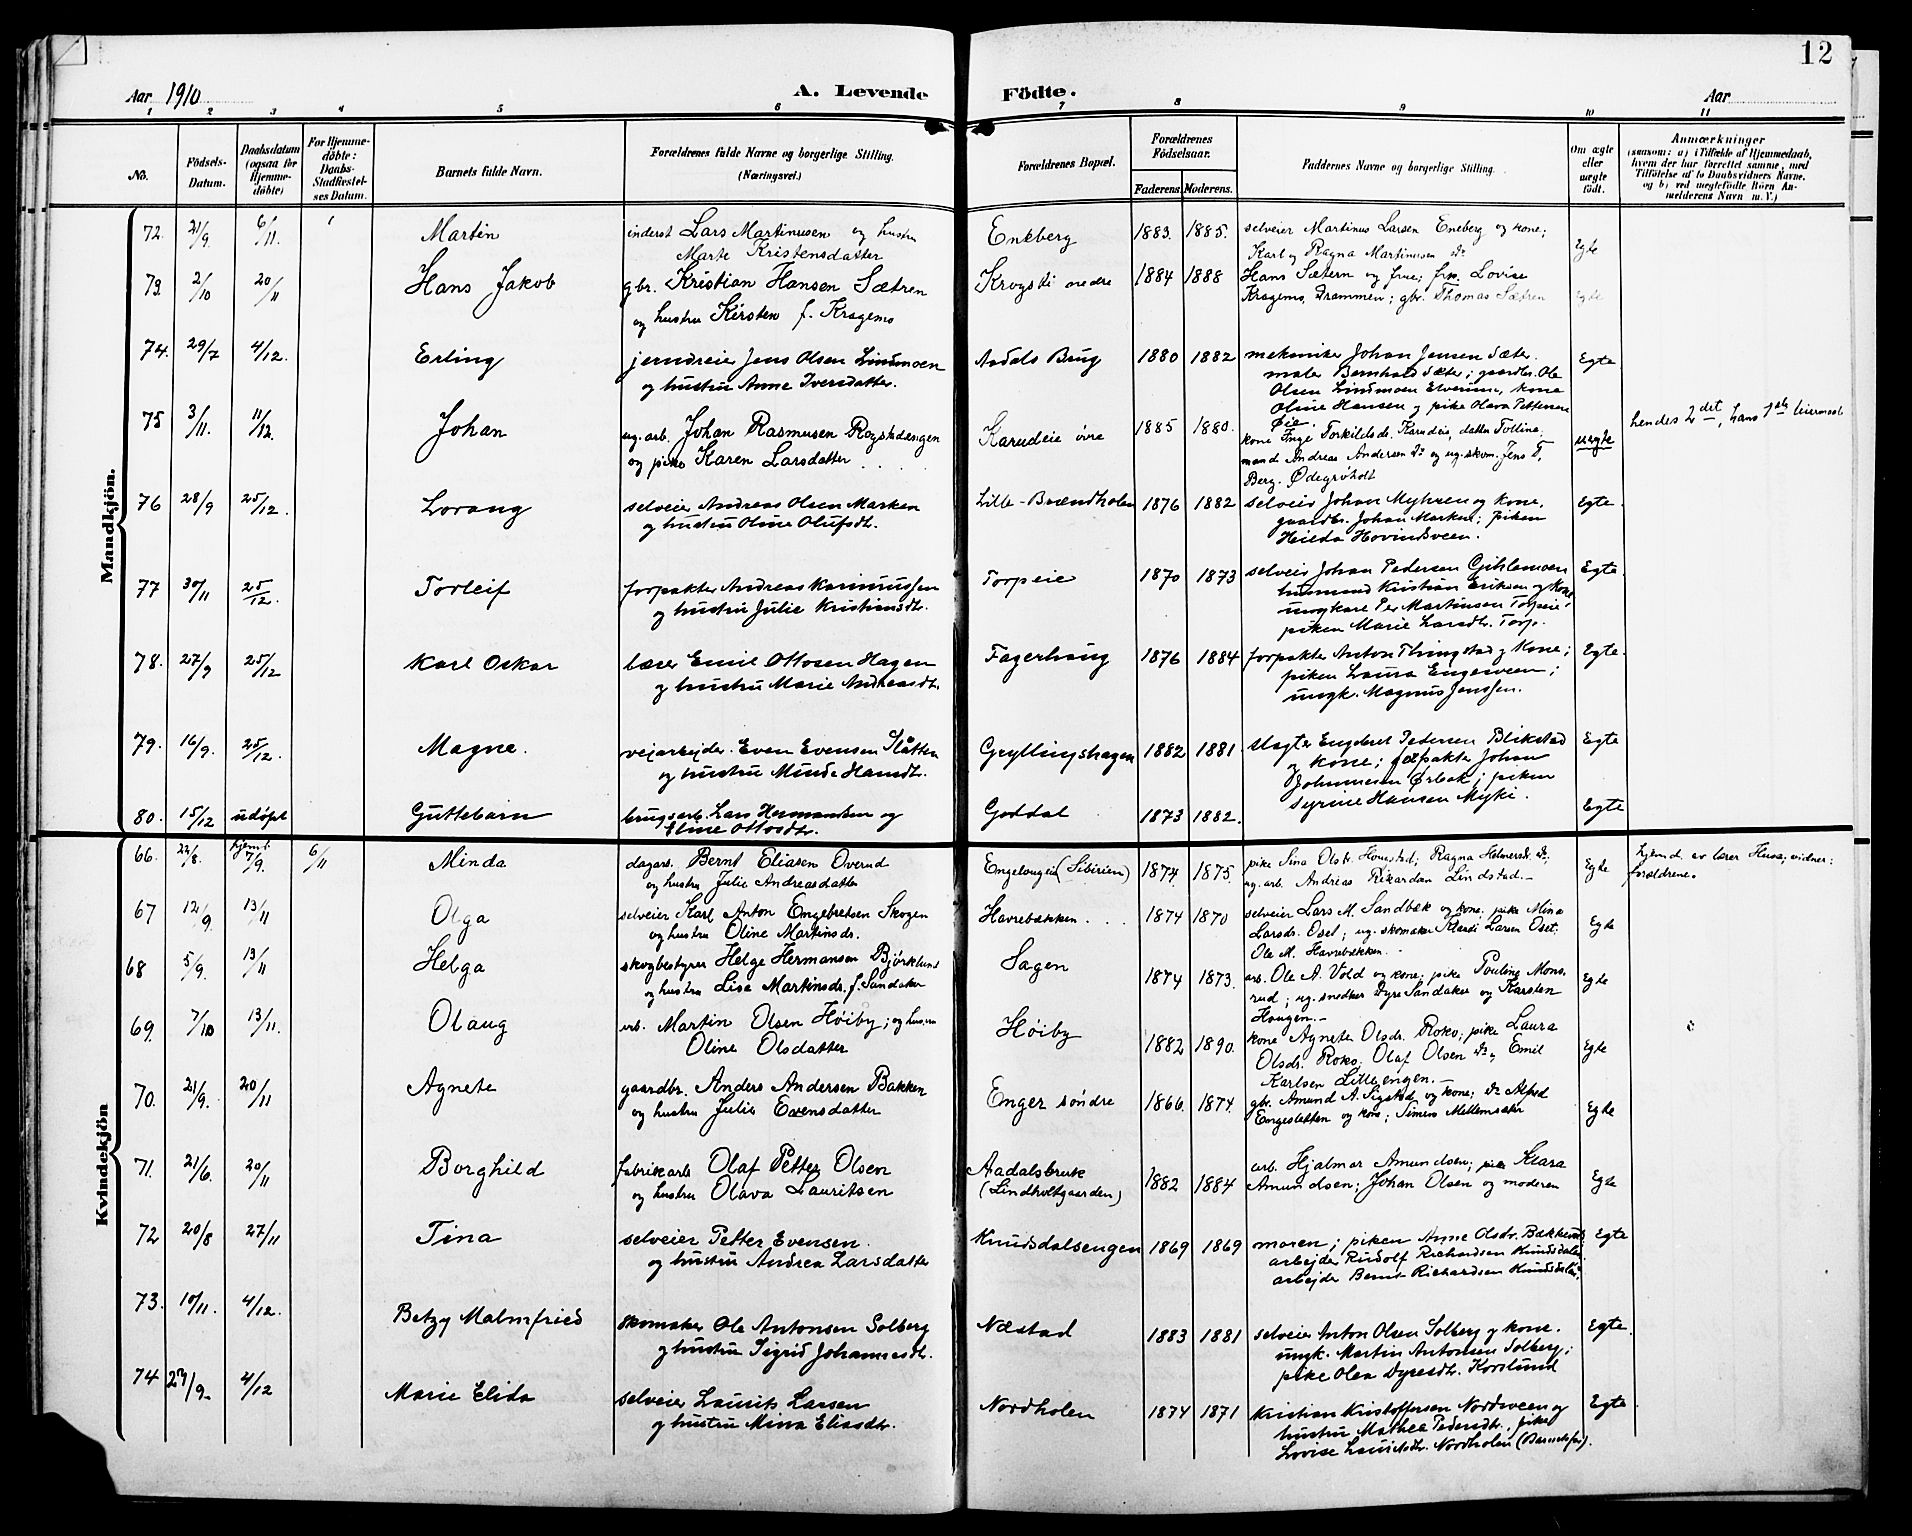 12
Aar 1910
A. Levende Födte.
Aar
1 2 3 4 5 6 7 8 9 10 11
No.
Födsels-Datum.
Daabsdatum (ogsaa for Hjemme-döbte)
For Hjemme-döbte: Daabs-Stadfæstel-ses Datum.
Barnets fulde Navn.
Forældrenes fulde Navne og borgerlige Stilling. (Næringsvei.)
Forældrenes Bopæl.
Forældrenes Födselsaar.
Faderens. Moderens.
Faddernes Navne og borgerlige Stilling.
Om ægte eller uægte födt.
Anmærkninger
(saasom: a) i Tilfælde af Hjemmedaab,
hvem der har forrettet samme, med
Tilföielse af to Daabsvidners Navne.
og b) ved uegtefödte Börn An-
melderens Navn m. V.)
Mandkjön.
72. 21/9. 6/11. Martin inderst Lars Martinusen og hustru Eneberg 1883. 1885. selveier Martinus Larsen Eneberg og kone; Egte
Marte Kristensdatter Karl og Ragna Martinusen
73. 2/10 20/11 Hans Jakob gbr. Kristian Hansen Sætren nedre 1884 1888 Hans Sætern og frue; frk. Lovise Egte
og hustru Kirsten f. Kragemo Kragemo, Drammen; gbr. Thomas Sætren
74. 29/7 4/12. Erling jerndreier Jens Olsen Lindmoen Aadals Brug 1880 1882 mekaniker Johan Jensen Sæter. Egte
og hustru Anne Iversdatter. maler Bernhard Sæter; gaardbr. Ole
Olsen Lindmoen Elverum, kone
Oline Hansen og pike Olava Pettersen
Øie.
75 3/11. 11/12. Johan ug. arb. Johan Rasmusen Karudeie øvre 1885 1880. kone Inge Torkildsd. Karudeie, datter Tolline uegte hendes 2det, hans 1ste leiermaal
og pike Karen Larsdatter Andreas Andersen og ug. skom. Jens T.
Berg. Ødegrøholt
76 28/9 25/12. Lorang selveier Andreas Olsen Marken Lille-Brændholen 1876 1882 selveier Johan Myhren og kone, Egte
og hustru Oline Olufsdt. gaardbr. Johan Marken; piken
Hilda Hovindsveen.
77 30/11 25/12. Torleif forpakter Andreas Rasmussen Torpeie 1870 1873 selveier Johan Pedersen Egte
og hustru Julie Kristiansdt. husmand Kristian Eriksen og kone
ungkarl Per Martinsen Torpeie,
piken Marie Larsdtr. Torp.
78. 27/9 25/12 Karl Oskar læser Emil Ottosen Hagen Fagerhaug 1876 1884 forpakter Anton Thingstad og kone; Egte
og hustru Marie Andreasdt. piken Laura Engesveen;
ungk. Magnus Jenssen.
79. 16/9. 25/12. Magne. veiarbejder Even Evensen Slåtten Gryllingshagen 1882 1881 slagter Engebret Pedersen Blikstad Egte
og hustru Minda Hansdt. og kone; forpakter Johan
Johannesen Ørbæk; piken
Syrine Hansen Myki.
80. 15/12 udöpt Guttebarn brugsarb. Lars Hermansen og Goddal 1873 1882. Egte
Eline Ottosdtr.
Kvindekjön
66. 22/8. hjemd. 7/9. 6/11 Minda dagarb. Bernt Eliasen Overud Engelaugeie (Sibirien) 1874. 1875. pike Sina Olsdt. Honestad; Ragna Egte hjemd. av lærer Husa; vidner:
og hustru Julie Andreasdatter ug. arb. Andreas Rikardsen Lindstad. forældrene.
67 12/9 13/11 Olga selveier Karl Anton Engebretsen Skogen Havrebækken. 1874 1870 selveier Lars M. Sandbæk og kone. pike Mina Egte
og hustru Oline Martinsdr. Larsdr. Oset; ug. skomaker Larsen Oset.
Ole M. Havrebækken.
68 5/9. 13/11 Helga skogbestyrer Helge Hermansen Björklund Sagen 1874 1873. arb. Ole A. Vold og kone; pike Pouline Mons- Egte
og hustru Lisa Martinsdr. f. Sandaker rud; ug. snedker Dyre Sandaker og Karsten
Haugen.
69. 7/10 13/11. Olaug arb. Martin Olsen Höiby; og hustru Höiby 1882 1890. kone Agnete Olsdr. Roko; pike Laura Egte
Oline Olsdatter Olsdr. Roko. Olaf Olsen Emil
Karlsen Lilleengen.
70. 21/9. 20/11 Agnete gaardbr. Anders Andersen Bakken Enger söndre 1866. 1874. gbr. Amund A. Sigstad og kone; Alfred Egte
og hustru Julie Evensdatter Engesletten og kone; Simen Mellemsæter
71. 21/6. 20/11 Borghild fabrikarb. Olaf Petter Olsen Aadalsbruk 1882 1884 arb. Hjalmar Amundsen; pike Klara Egte
og hustru Olava Lauritsen (Lindholtgaarden) Amundsen; Johan Olsen og moderen
72 20/8 27/11 Tina selveier Petter Evensen. Knudsdalsengen 1869 1869 moren; piken Anne Olsdr. Bakkerud; Egte
og hustru Andrea Larsdatter arbejder Rudolf Richardsen Knudsdalen
arbejder Bernt Richardsen Knudsdalen.
73. 10/11. 4/12. Betzy Malmfried skomaker Ole Antonsen Solberg Næstad 1883 1881 selveier Anton Olsen Solberg og kone. Egte
og hustru Sigrid Johannesdt. ungk. Martin Antonsen Solberg;
pike Olea Dyresdt. Korslund
74 27/9. 4/12 Marie Elida selveier Laurits Larsen Nordholen 1874 1871 Kristian Kristoffersen Nordsveen og Egte
og hustru Mina Eliasdtr. hustru Mathea Pedersdt., pike
Lovise Lauritsdtr. Nordholen